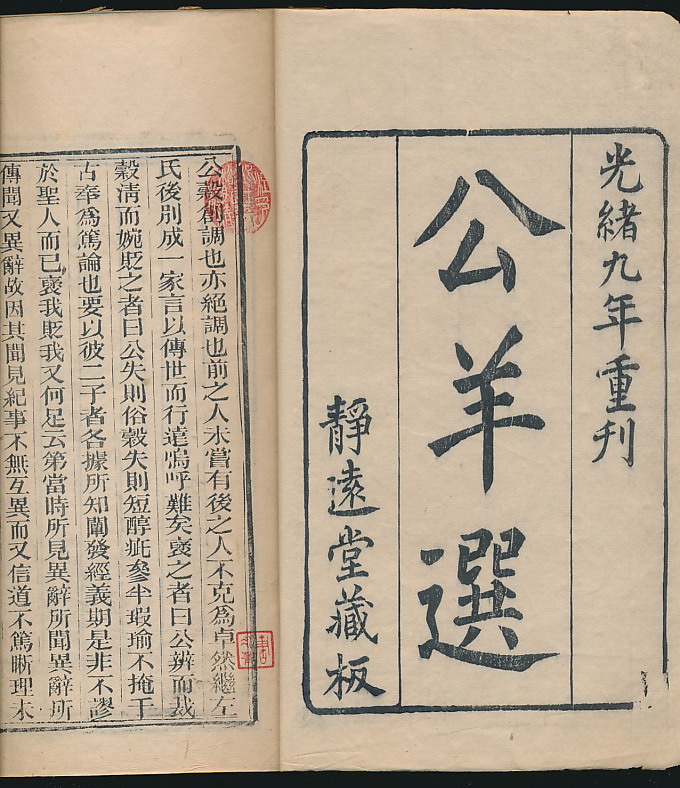 光緒九年重刊
公羊選
靜遠堂藏板
公穀創調也亦絕調也前之人未嘗有後之人不克為卓然繼左
氏後別成一家言以傳世而行遠嗚呼難矣襃之者曰公辨而裁
穀清而婉貶之者曰公失則俗穀失則短醇疵參半瑕瑜不掩千
古奉為篤論也要以彼二子者各據所知闡發經義期是非不謬
於聖人而已襃我貶我又何足云第當時所見異辭所聞異辭所
傳聞又異辭故因其聞見紀事不無互異而又信道不篤晰理未